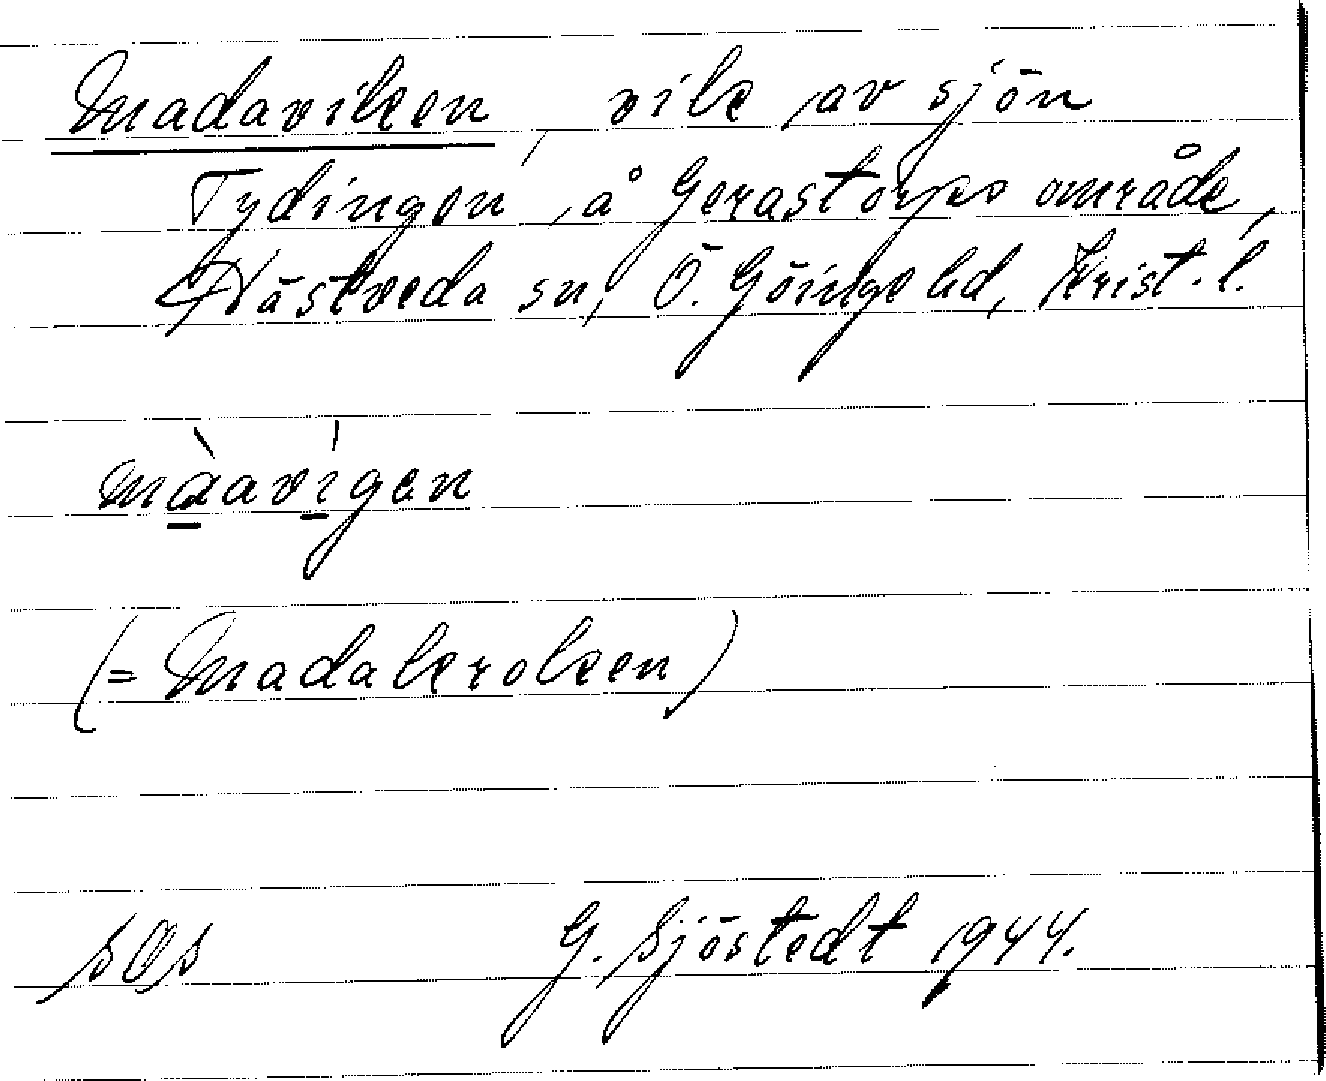 Madaviken, vik av sjön
Tydingen, å Gerastorps område,
Hästveda sn, Ö. Göinge hd, Krist. l.
màavígen
(= Madakroken)
G. Sjöstedt 1944.